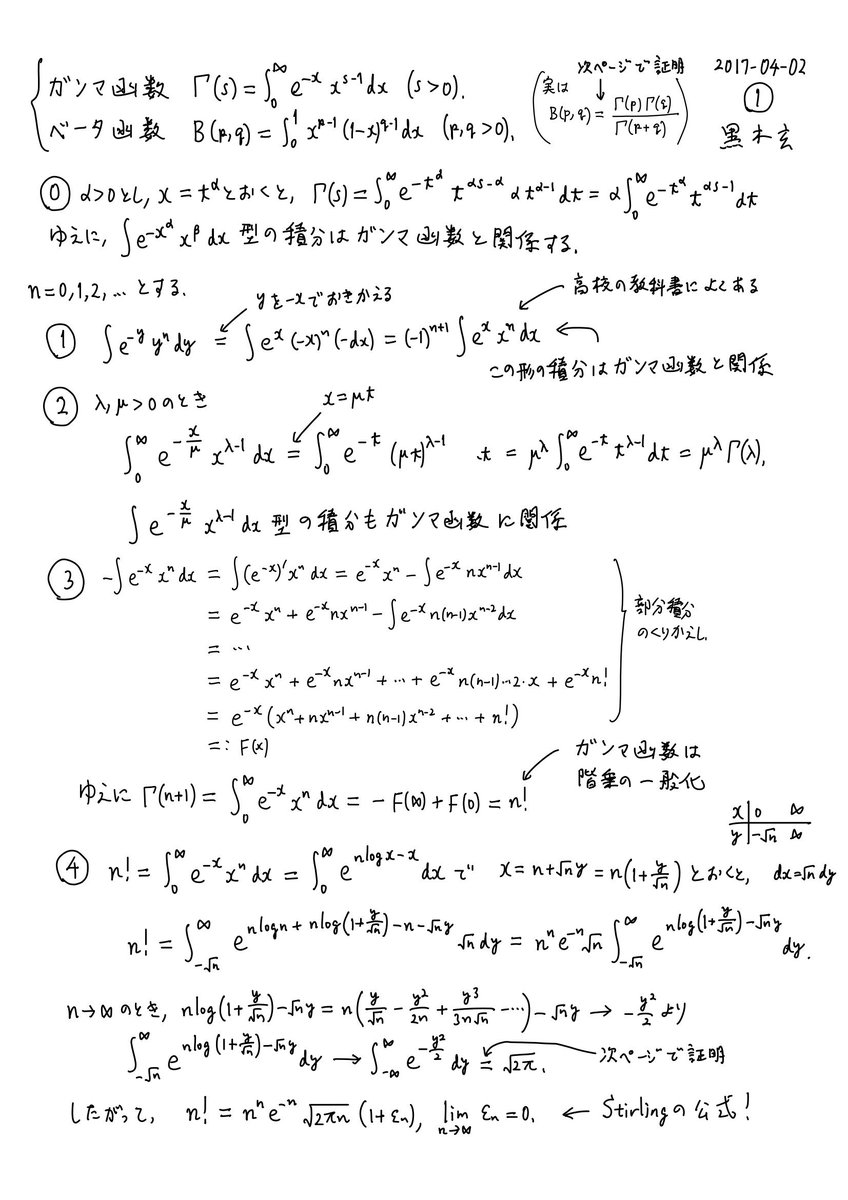 ガンマ函数 Γ(s) = ∫₀^∞ e^{-x} x^{s-1} dx (s>0).
ベータ函数 B(p,q) = ∫₀¹ x^{p-1} (1-x)^{q-1} dx (p,q>0).
次ページで証明
(実は B(p,q) = Γ(p)Γ(q)/Γ(p+q))
2017-04-02
①
黒木玄
⓪ α>0とし, x = t^α とおくと, Γ(s) = ∫₀^∞ e^{-t^α} t^{αs-α} α t^{α-1} dt = α∫₀^∞ e^{-t^α} t^{αs-1} dt
ゆえに, ∫e^{-x^α} x^β dx 型の積分はガンマ函数と関係する.
n=0,1,2,… とする.
yを-xでおきかえる
高校の教科書によくある
① ∫e^{-y} y^n dy = ∫e^x (-x)^n (-dx) = (-1)^{n+1} ∫e^x x^n dx ←
この形の積分はガンマ函数と関係
② λ,μ>0のとき
x=μt
∫₀^∞ e^{-x/μ} x^{λ-1} dx = ∫₀^∞ e^{-t} (μt)^{λ-1} .t = μ^λ ∫₀^∞ e^{-t} t^{λ-1} dt = μ^λ Γ(λ).
∫e^{-x/μ} x^{λ-1} dx 型の積分もガンマ函数に関係
③ -∫e^{-x} x^n dx = ∫(e^{-x})' x^n dx = e^{-x} x^n - ∫e^{-x} nx^{n-1} dx
= e^{-x} x^n + e^{-x} nx^{n-1} - ∫e^{-x} n(n-1)x^{n-2} dx
= …
= e^{-x} x^n + e^{-x} nx^{n-1} + … + e^{-x} n(n-1)…2・x + e^{-x} n!
= e^{-x} (x^n + nx^{n-1} + n(n-1)x^{n-2} + … + n!)
=: F(x)
部分積分
のくりかえし.
ゆえに Γ(n+1) = ∫₀^∞ e^{-x} x^n dx = -F(∞) + F(0) = n!
ガンマ函数は
階乗の一般化
x | 0 ∞
y | -√n ∞
④ n! = ∫₀^∞ e^{-x} x^n dx = ∫₀^∞ e^{nlogx-x} dx で x = n+√n y = n(1+y/√n) とおくと, dx=√n dy
n! = ∫_{-√n}^∞ e^{nlogn+nlog(1+y/√n)-n-√n y} √n dy = n^n e^{-n} √n ∫_{-√n}^∞ e^{nlog(1+y/√n)-√n y} dy.
n→∞ のとき, nlog(1+y/√n)-√n y = n(y/√n - y²/2n + y³/3n√n - …) - √n y → -y²/2 より
∫_{-√n}^∞ e^{nlog(1+y/√n)-√n y} dy → ∫_{-∞}^∞ e^{-y²/2} dy = √2π. 次ページで証明
したがって, n! = n^n e^{-n} √2πn (1+εn), lim_{n→∞} εn=0. ← Stirlingの公式!